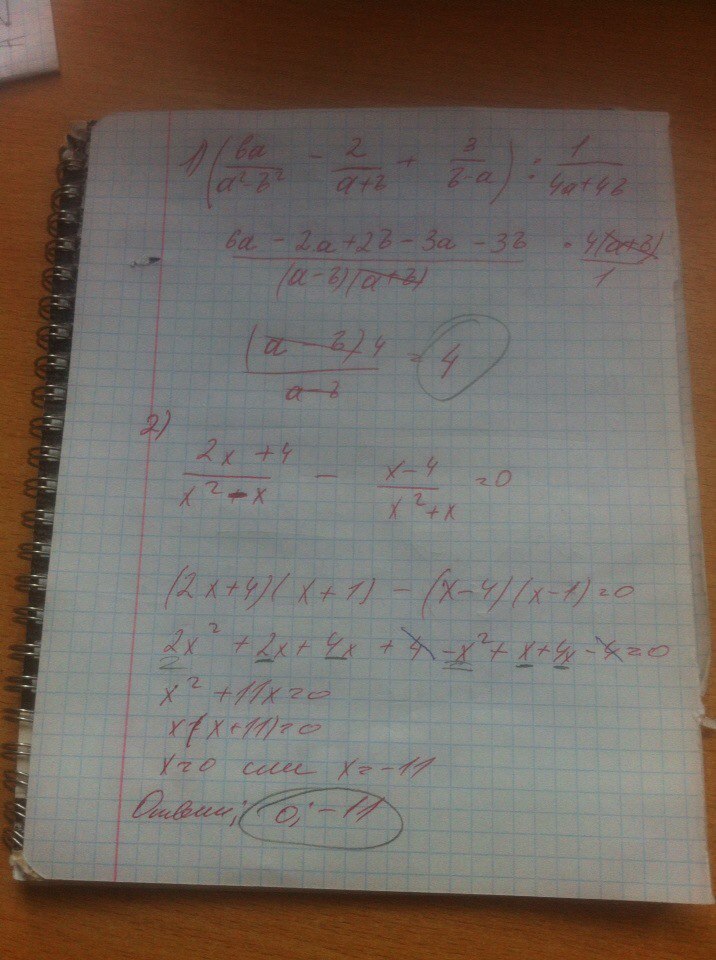 1) (6a/(a²-b²) - 2/(a+b) + 3/(b-a)) : 1/(4a+4b)
(6a - 2a + 2b - 3a - 3b)/((a-b)(a+b)) · 4(a+b)/1
(a-b)4/(a-b) = 4
2)
(2x+4)/(x²-x) - (x-4)/(x²+x) = 0
(2x+4)(x+1) - (x-4)(x-1)=0
2x² + 2x + 4x + 4 - x² + x + 4x - 4 = 0
x² + 11x = 0
x(x+11)=0
x=0 или x=-11
Ответ: 0; -11